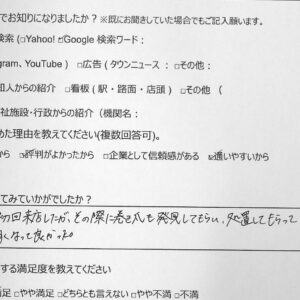 でお知りになりましたか？※既にお聞きしていた場合でもご記入願います。
検索（□Yahoo! ☑Google 検索ワード：
gram、YouTube ） □広告（タウンニュース ： □その他：
知人からの紹介 □看板（駅・路面・店頭） □その他 （
祉施設・行政からの紹介（機関名：
めた理由を教えてください(複数回答可)。
から ☑評判がよかったから □企業として信頼感がある ☑通いやすいから
てみていかがでしたか？
初回来店したが、その際に巻き爪も発見してもらい、処置してもらって
くなって良かった
する満足度を教えてください
満足 □やや満足 □どちらとも言えない □やや不満 □不満